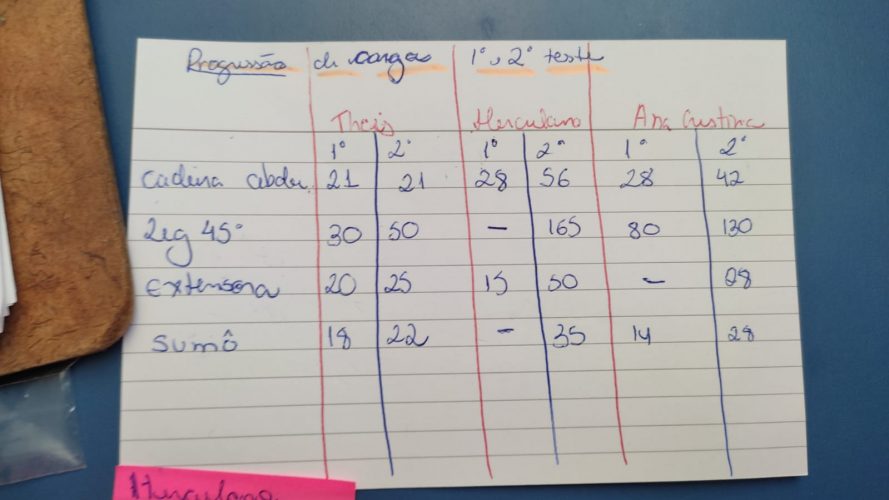 Progressão de cargas 1º, 2º teste
Thais Herculano Ana Cristina
1º 2º 1º 2º 1º 2º
Cadeira abdu. 21 21 28 56 28 42
Leg 45º 30 50 - 165 80 130
Extensora 20 25 15 50 - 28
Sumô 18 22 - 35 14 28
Herculano